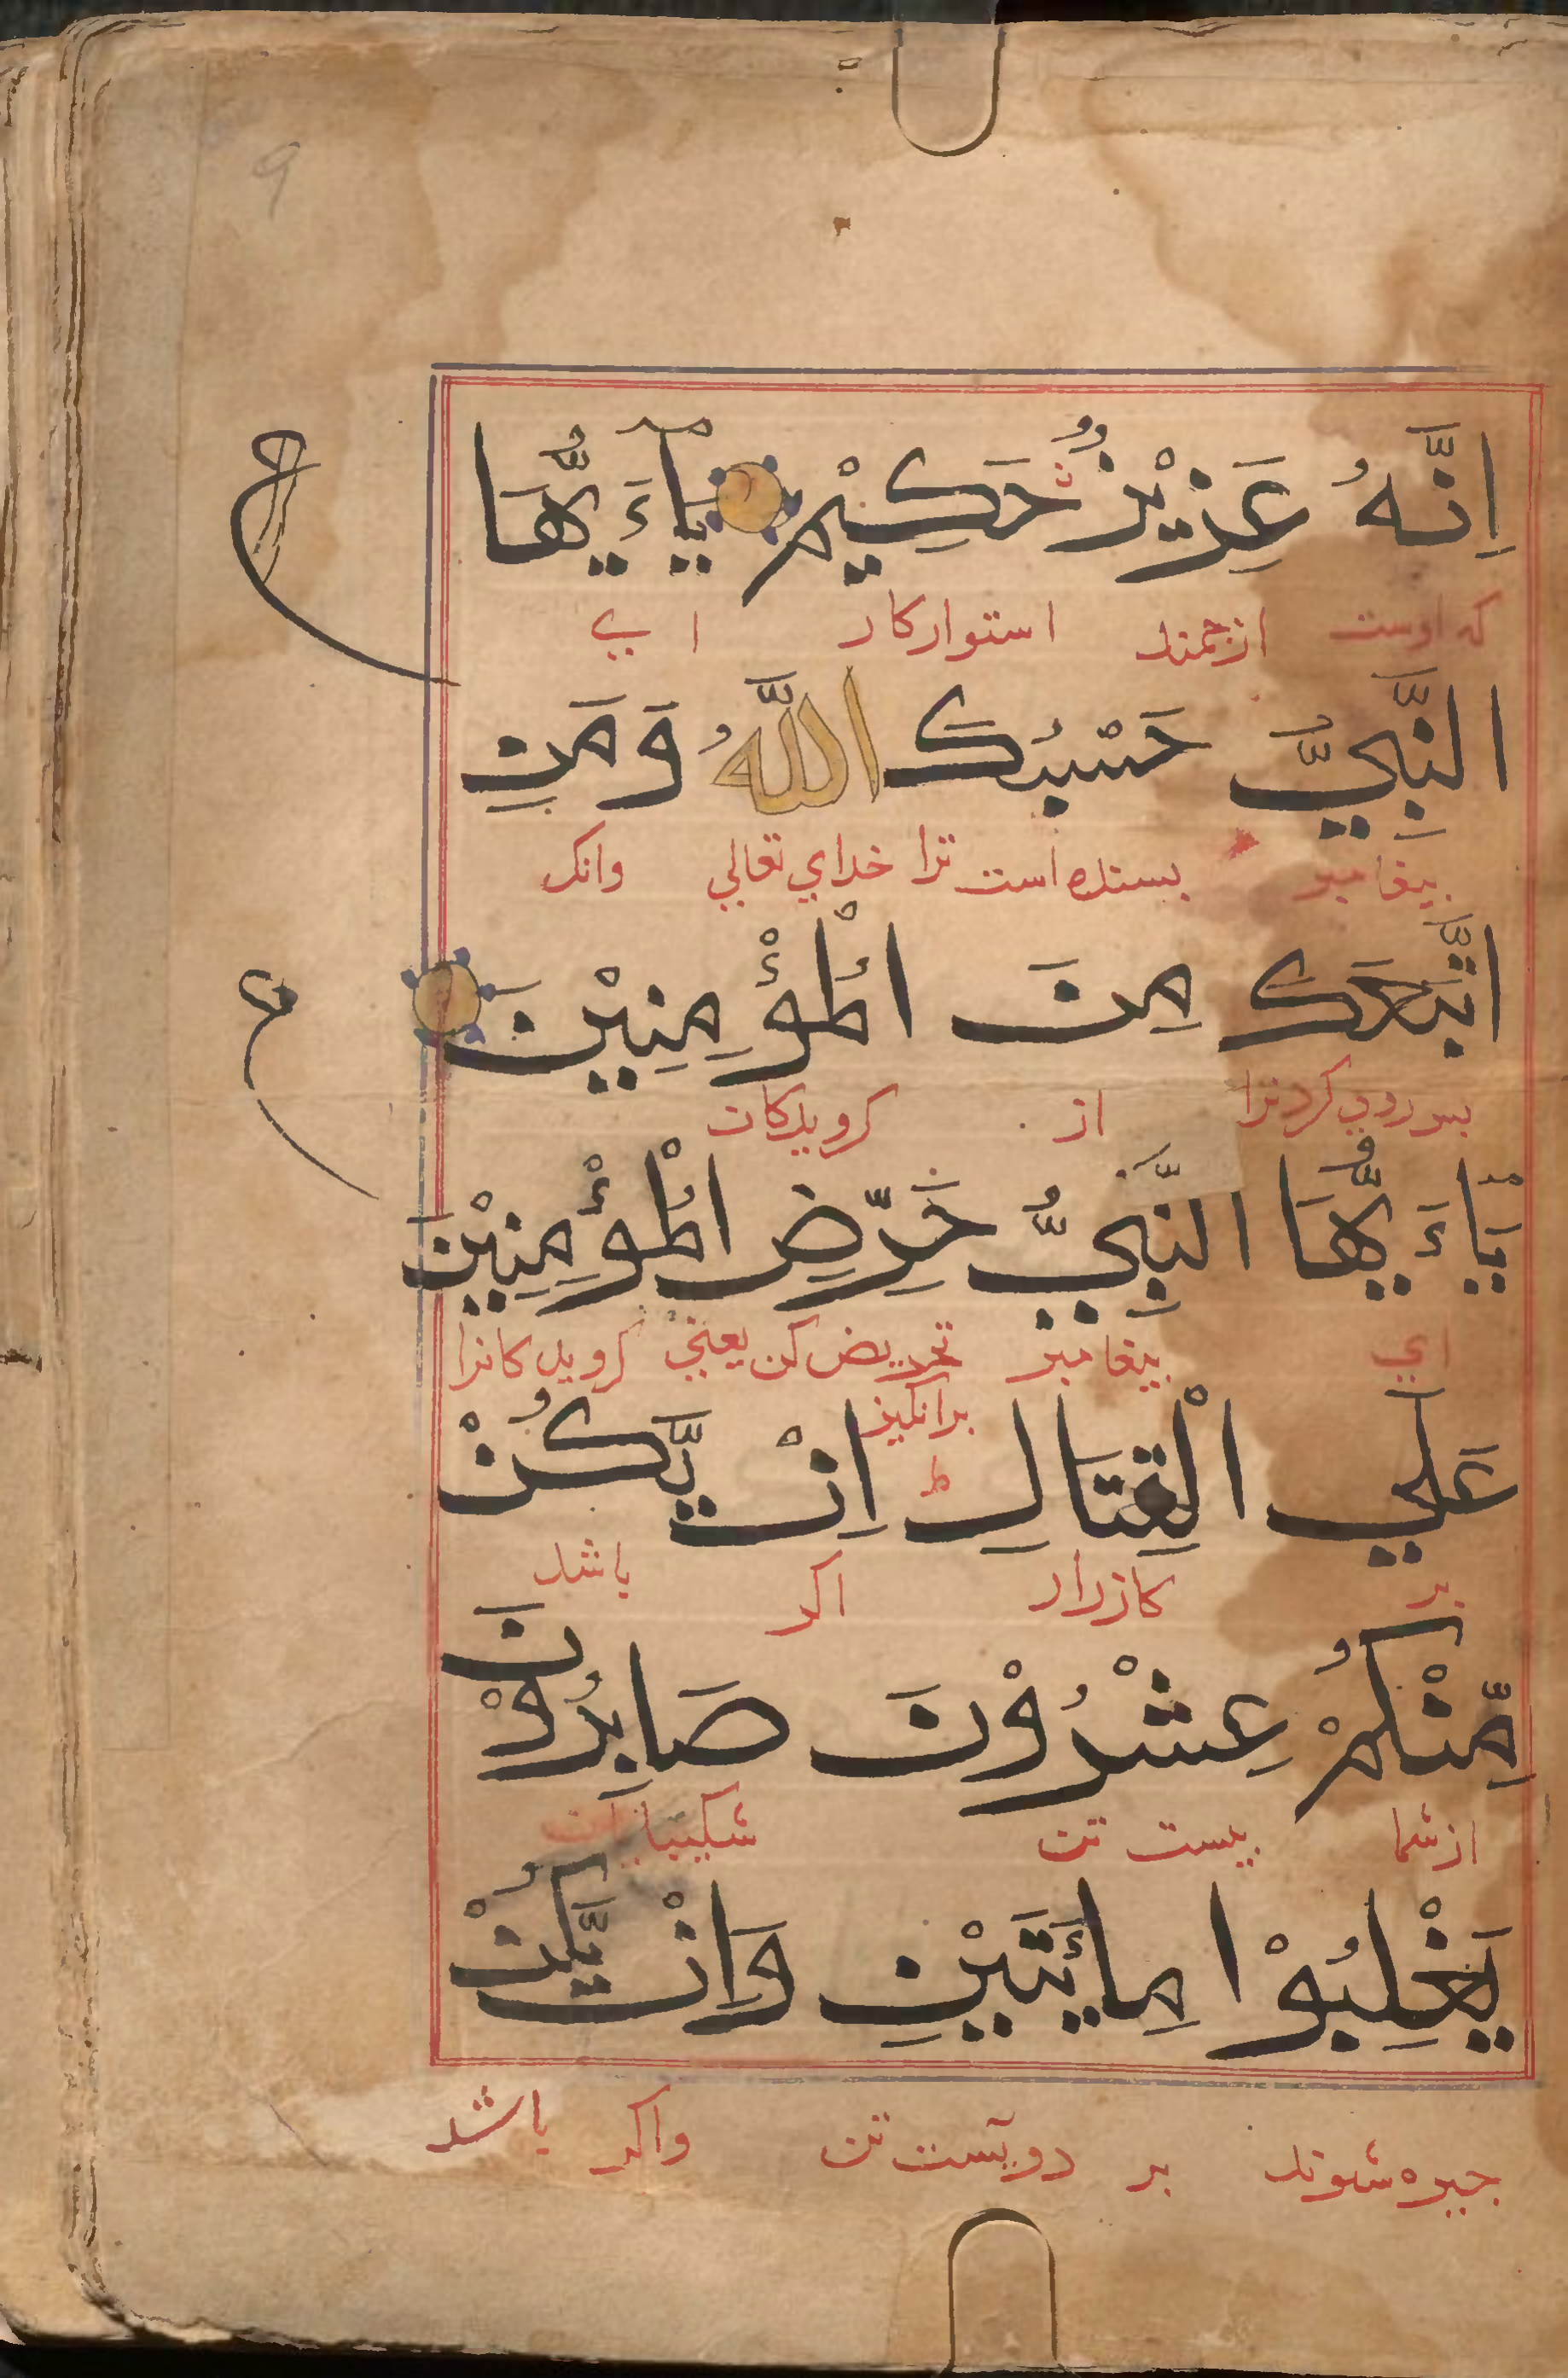 اِنَّهُ عَزِيْزٌ حَكِيْمٌ يٰٓاَيُّهَا
که اوست ارجمند استوارکار ای
النَّبِيُّ حَسْبُكَ اللّٰهُ وَمَنِ
بیغامبر بسنده است ترا خدای تعالی وانکر
اتَّبَعَكَ مِنَ الْمُؤْمِنِيْنَ
بس روی کرد ترا از کرویدکان
يٰٓاَيُّهَا النَّبِيُّ حَرِّضِ الْمُؤْمِنِيْنَ
ای بیغامبر تحریض کن یعنی کرویدکانرا
برانکیز
عَلَي الْقِتَالِ ط اِنْ يَّكُنْ
بر کارزار اکر باشد
مِّنْكُمْ عِشْرُوْنَ صَابِرُوْنَ
از شما بیست تن شکیبایان
يَغْلِبُوْا مِائَتَيْنِ وَاِنْ يَّكُنْ
جیره شوند بر دویست تن واکر باشد